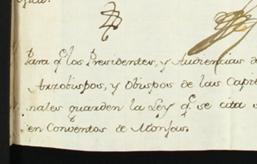 Para q.e los Presidentes, y Audiencias de
Arzobispos, y Obispos de las Capi
nales guarden la Ley q.e se cita s
en Conventos de Monjas.